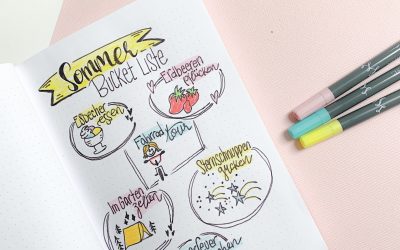 Sommer
Bucket Liste
Erdbeeren
pflücken
Eisbecher
essen
Fahrrad
tour
Sternschnuppen
gucken
Im Garten
zelten